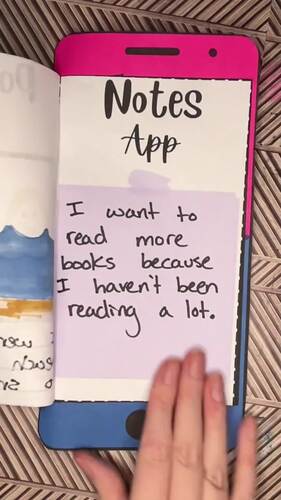 Notes
App
I want to
read more
books because
I haven't been
reading a lot.